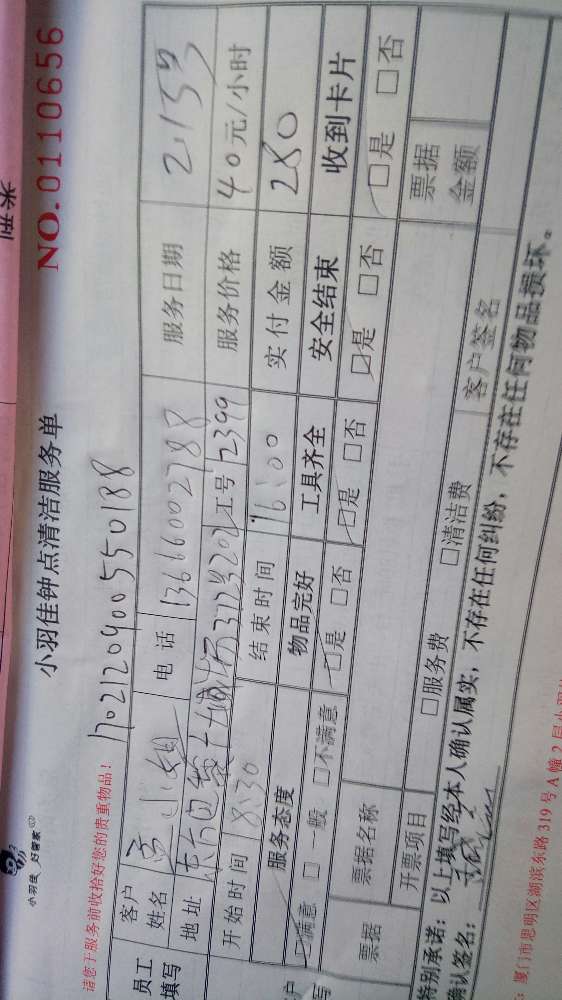 米型
小羽佳 好管家
小羽佳钟点清洁服务单
NO.0110656
请您于服务前收拾好您的贵重物品!
17021209005550188
员工填写
客户姓名 小姐 电话 13666002788 服务日期
地址 工号 2399 服务价格 40元/小时
开始时间 8:30 结束时间 16:00 实付金额 280
服务态度 物品完好 工具齐全 安全结束 收到卡片
□满意 □一般 □不满意 □是 □否 □是 □否 □是 □否 □是 □否
票据 票据名称 票据金额
开票项目 □服务费 □清洁费
特别承诺:以上填写经本人确认属实,不存在任何纠纷,不存在任何物品损坏。
确认签名: 客户签名
厦门市思明区湖滨东路 319 号 A 幢 2 层